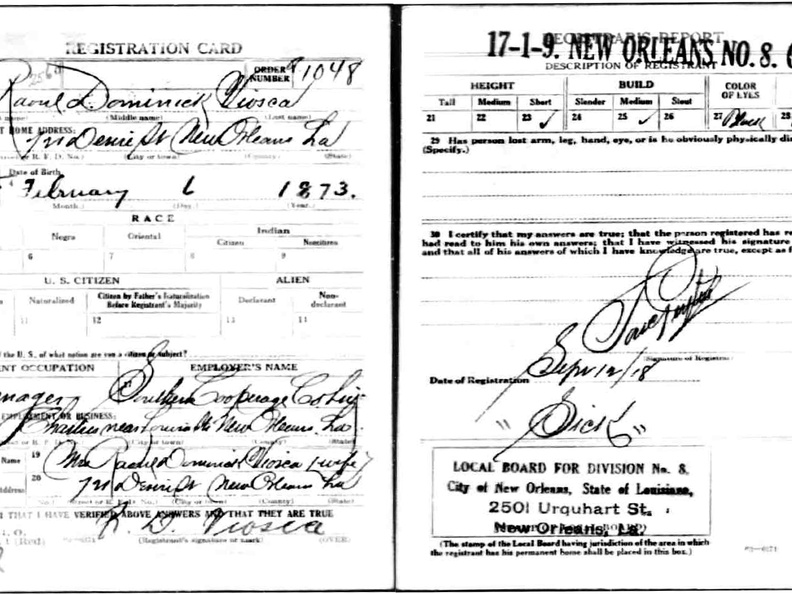 REGISTRATION CARD
ORDER NUMBER 1048
Raoul Dominick Viosca
(Middle name) (Last name)
HOME ADDRESS:
Desire St New Orleans La
(City or town) (County) (State)
Date of Birth
February 6 1873.
(Month.) (Day.) (Year.)
RACE
Negro Oriental Indian
Citizen Noncitizen
6 7 8 9
U. S. CITIZEN ALIEN
Naturalized Citizen by Father's Naturalization Before Registrant's Majority Declarant Non-declarant
11 12 13 14
the U. S., of what nation are you a citizen or subject?
OCCUPATION EMPLOYER'S NAME
Manager Southern Cooperage Co
OR BUSINESS:
near Louisa St New Orleans La
(City or town) (County) (State)
Name 19 Mrs Raoul Dominick Viosca (wife)
Address 20 Desire St New Orleans La
(City or town) (County) (State)
THAT I HAVE VERIFIED ABOVE ANSWERS AND THAT THEY ARE TRUE
R. D. Viosca
(Registrant's signature or mark) (OVER)
REGISTRAR'S REPORT
17-1-9. NEW ORLEANS NO. 8.
DESCRIPTION OF REGISTRANT
HEIGHT BUILD COLOR OF EYES
Tall Medium Short Slender Medium Stout
21 22 23 ✓ 24 25 ✓ 26 27 Black 28
29 Has person lost arm, leg, hand, eye, or is he obviously physically
(Specify.)
30 I certify that my answers are true; that the person registered has
had read to him his own answers; that I have witnessed his signature
and that all of his answers of which I have knowledge are true, except as
(Signature of Registrar)
Date of Registration Sept 12/18
"Sick"
LOCAL BOARD FOR DIVISION No. 8,
City of New Orleans, State of Louisiana,
2501 Urquhart St.
New Orleans, La.
(The stamp of the Local Board having jurisdiction of the area in which
the registrant has his permanent home shall be placed in this box.)